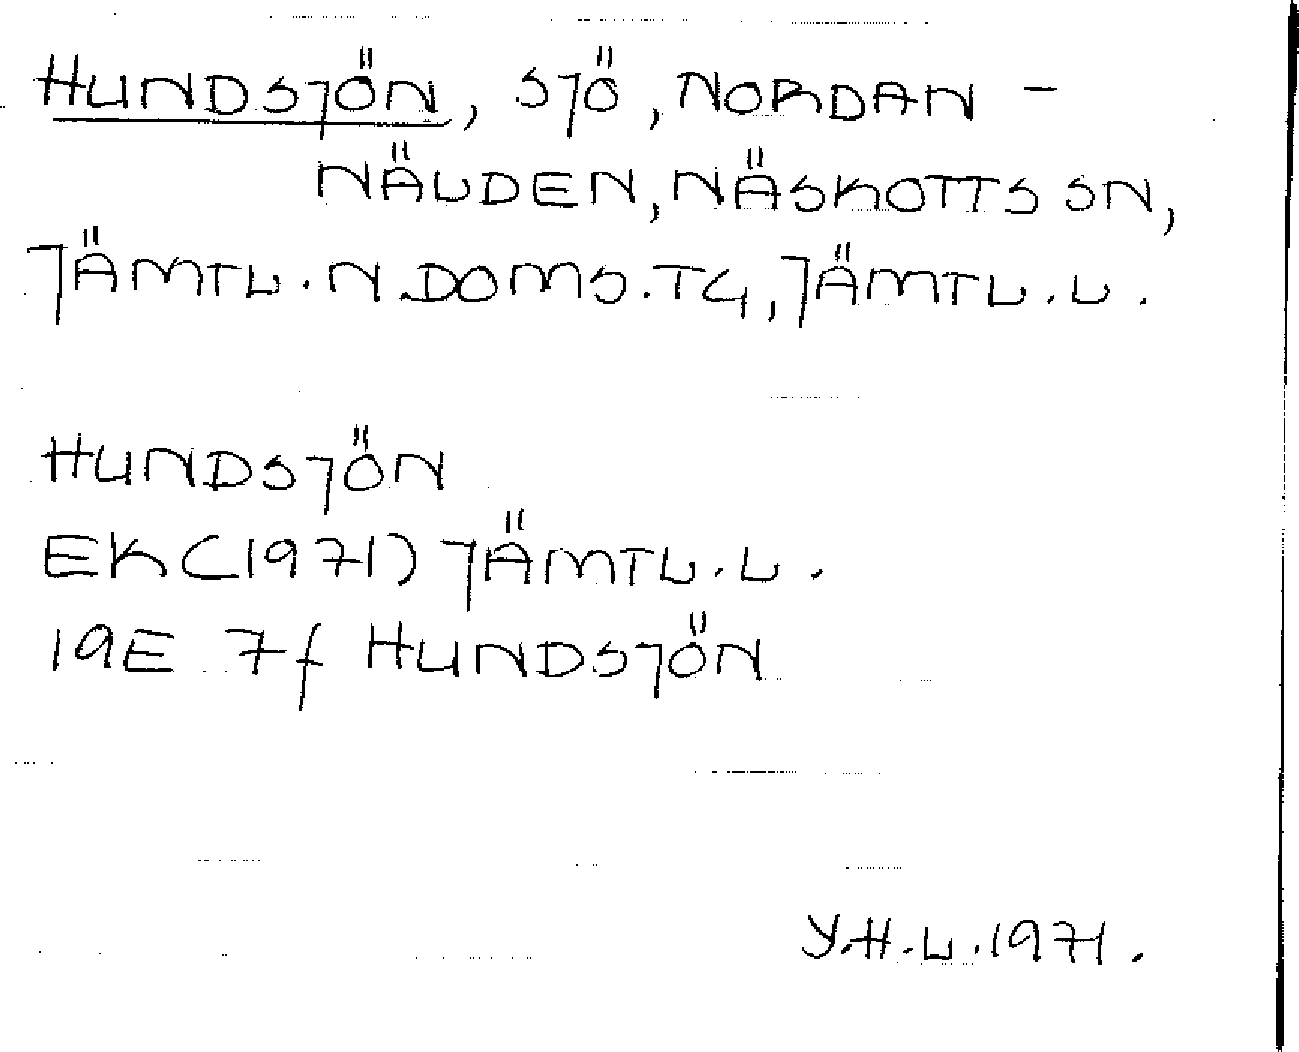 HUNDSJÖN, SJÖ, NORDAN-
NÄLDEN, NÄSKOTTS SN,
JÄMTL. N. DOMS. TG, JÄMTL. L.
HUNDSJÖN
EK (1971) JÄMTL. L.
19E 7f HUNDSJÖN
Y.H.L. 1971.